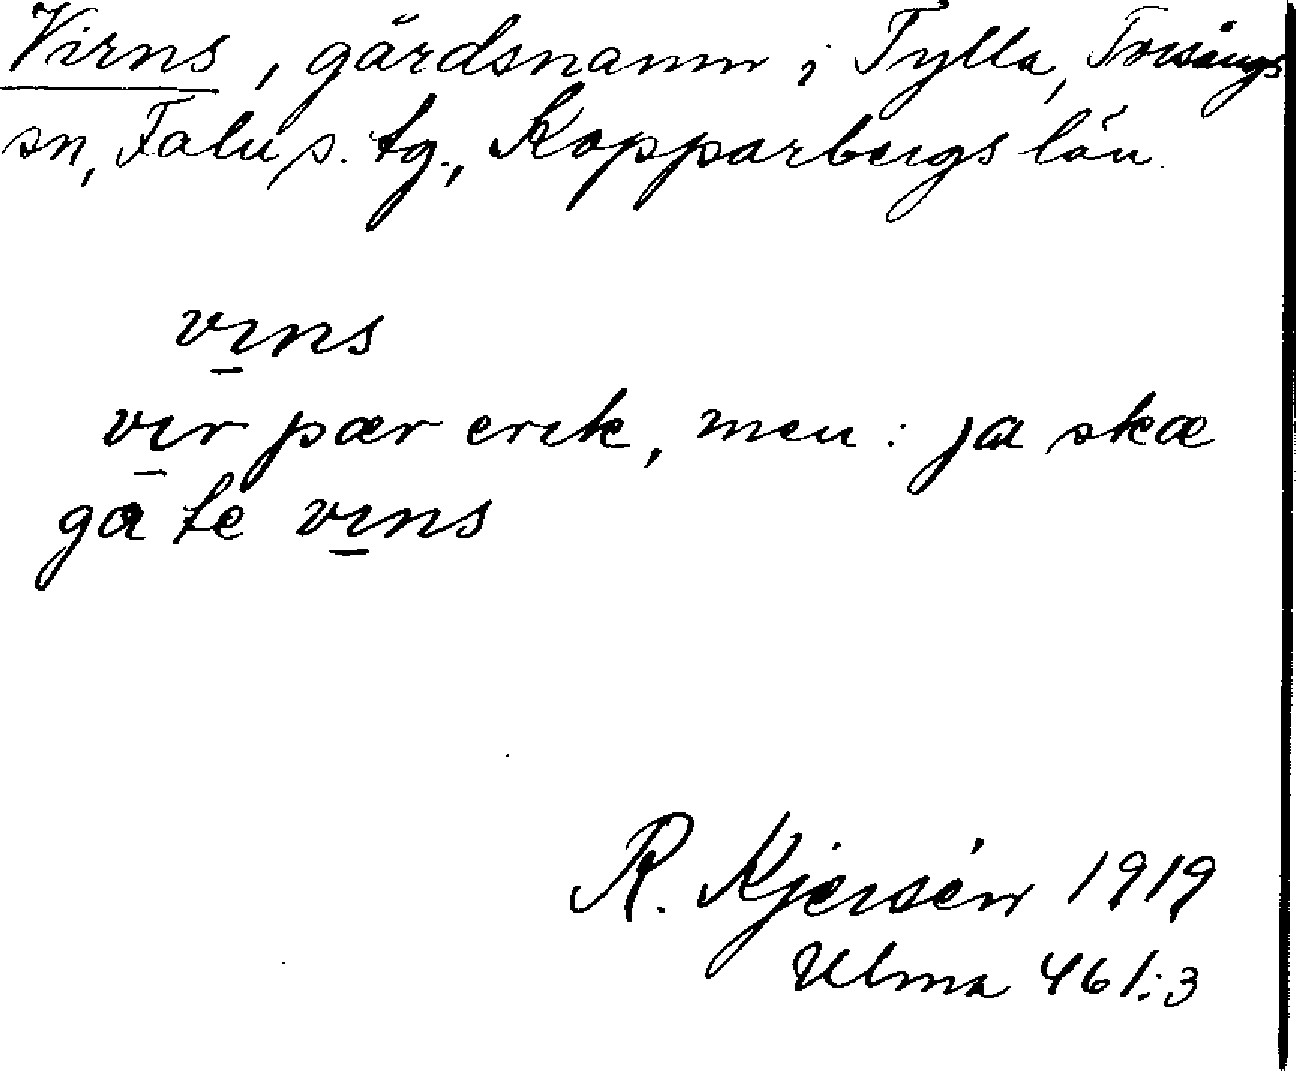 Virns, gårdsnamn i Tylla, Torsångs
sn, Falu s. tg., Kopparbergs län.
vɪns
vɪr pær erɪk, men: ja skæ
gɑ te vɪns
R. Kjersén 1919
Ulma 461:3